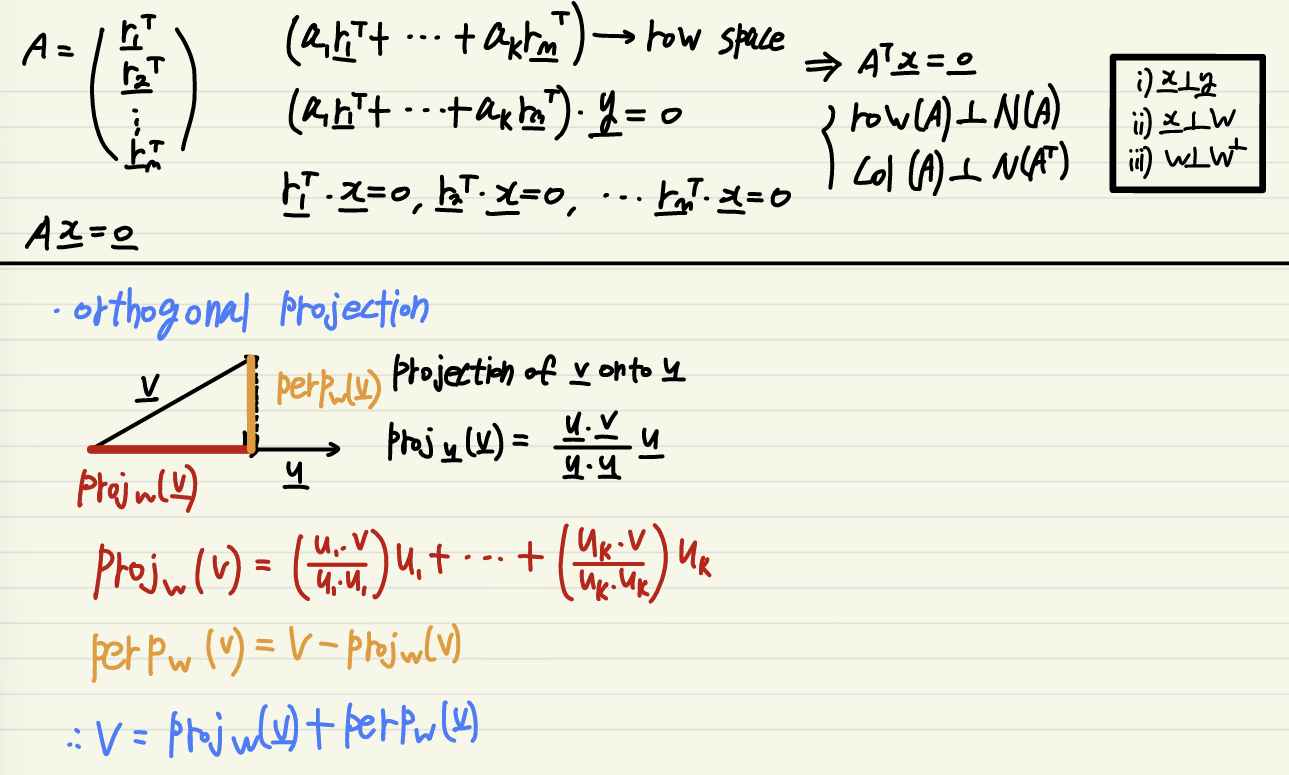 A = ( r₁ᵀ
r₂ᵀ
⋮
rₘᵀ )
(a₁r₁ᵀ + ⋯ + aₖrₘᵀ) → row space
(a₁r₁ᵀ + ⋯ + aₖrₘᵀ) · y = 0
r₁ᵀ · x = 0, r₂ᵀ · x = 0, ⋯ rₘᵀ · x = 0
Ax = 0
⇒ Aᵀx = 0
{ row(A) ⊥ N(A)
col(A) ⊥ N(Aᵀ)
i) x ⊥ y
ii) x ⊥ W
iii) W ⊥ W^⊥
· orthogonal projection
v
perp_w(v)
u
proj_w(v)
projection of v onto u
proj_u(v) = (u · v)/(u · u) u
proj_w(v) = ((u₁ · v)/(u₁ · u₁)) u₁ + ⋯ + ((uₖ · v)/(uₖ · uₖ)) uₖ
perp_w(v) = v − proj_w(v)
∴ v = proj_w(v) + perp_w(v)